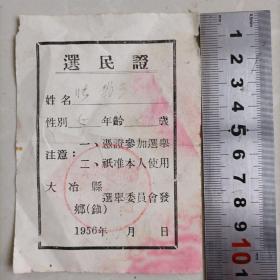 選民證
姓名
性別 年齡 歲
注意：
一、憑證參加選舉
二、祇准本人使用
大冶縣
鄉(鎮)選舉委員會發
1956年 月 日
1 2 3 4 5 6 7 8 9 10